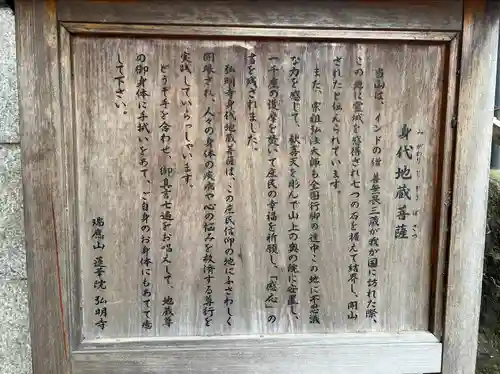 みがわりじぞうぼさつ
身代地蔵菩薩
当山は、インドの僧 善無畏三蔵が我が国に訪れた際、
この地に霊域を感得され七つの石を据えて結界し、開山
されたと伝えられています。
また、宗祖弘法大師も全国行脚の途中この地に不思議
な力を感じて、歓喜天を彫んで山上の奥の院に安置し、
一千座の護摩を焚いて庶民の幸福を祈願し、「感応」の
言を残されました。
弘明寺身代地蔵菩薩は、この庶民信仰の地にふさわしく
開眼され、人々の身体の疾病や心の悩みを救済する尊行を
実践していらっしゃいます。
どうぞ手を合わせ、御真言七遍をお唱えして、地蔵尊
の御身体に手拭いをあて、ご自身のお身体にもあてて念
して下さい。
瑞應山 蓮華院 弘明寺